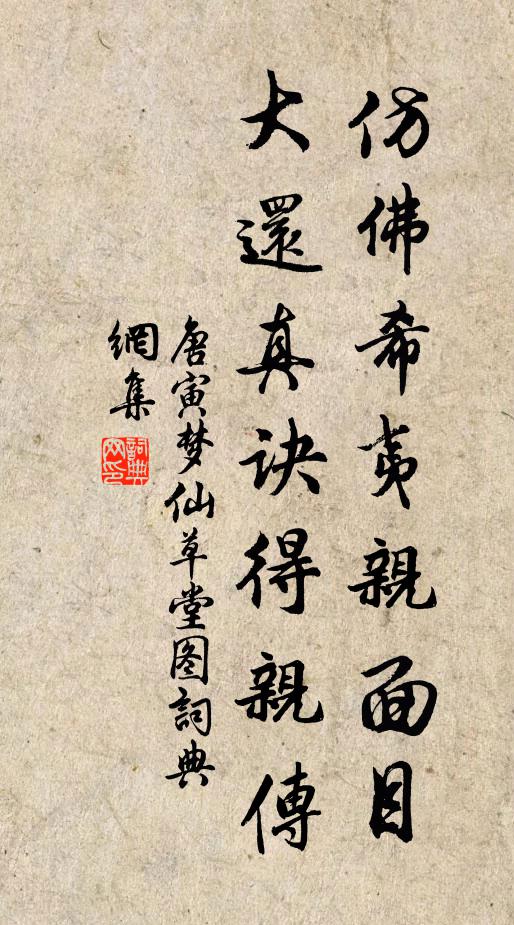 仿佛希夷親面目
大還真訣得親傳
唐寅梦仙草堂图詞典
網集
詞典
网印